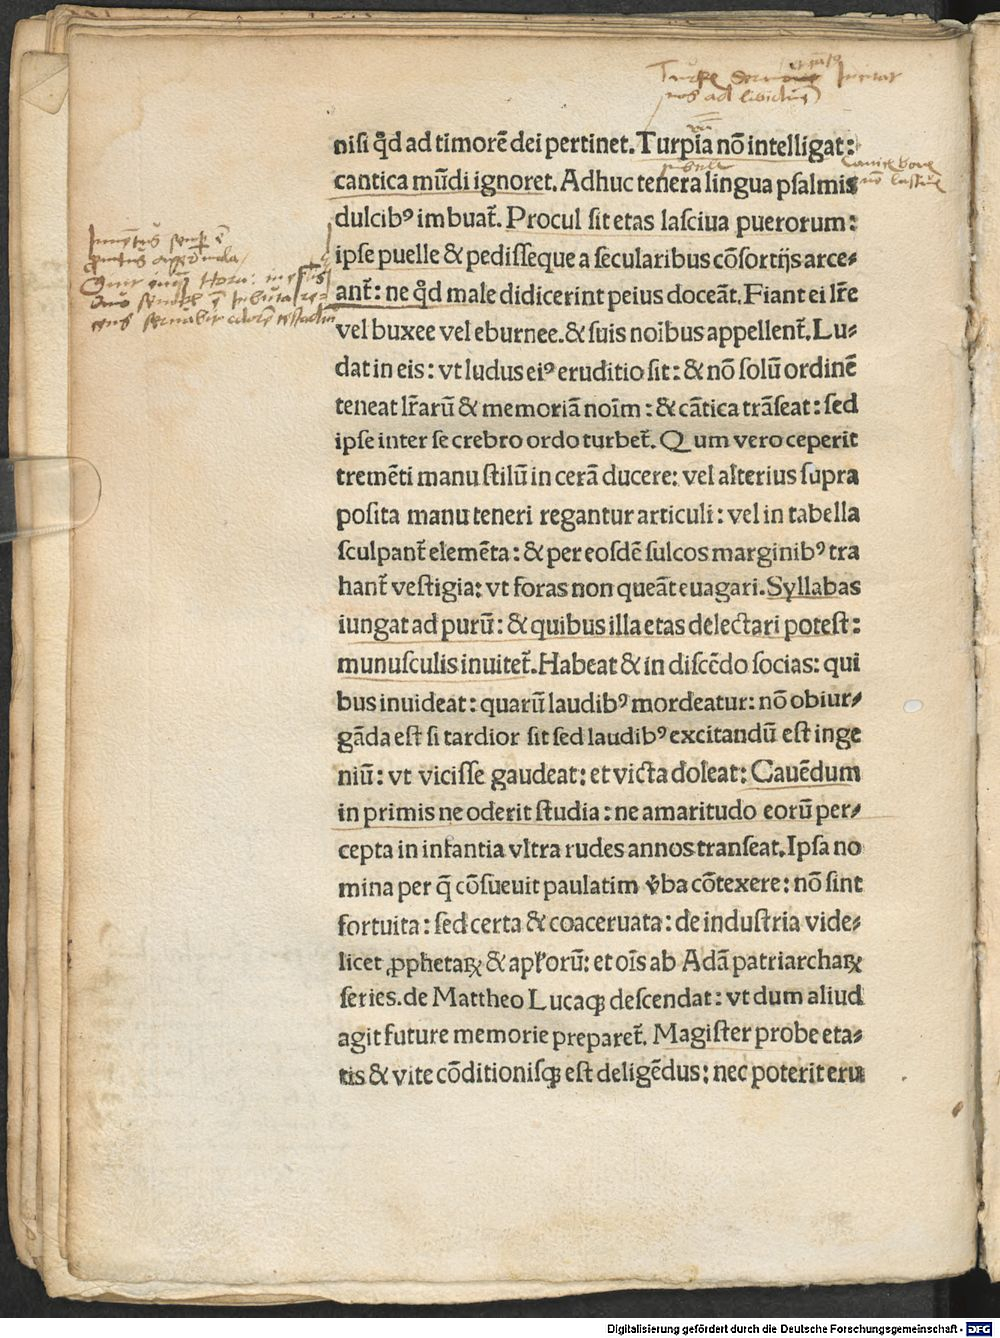 nisi qd̕ ad timorē dei pertinet. Turpia nō intelligat:
cantica mūdi ignoret. Adhuc tenera lingua psalmis
dulcibꝰ imbuat̄. Procul sit etas lasciua puerorum:
ipse puelle & pedisseque a secularibus cōsortijs arce-
ant̄: ne qd̕ male didicerint peius doceāt. Fiant ei lr̄e
vel buxee vel eburnee. & suis noībus appellent̄. Lu-
dat in eis: vt ludus eiꝰ eruditio sit: & nō solū ordinē
teneat lr̄arū & memoriā noīm: & cātica trāseat: sed
ipse inter se crebro ordo turbet̄. Qum vero ceperit
tremēti manu stilū in cerā ducere: vel alterius supra
posita manu teneri regantur articuli: vel in tabella
sculpant̄ elemēta: & per eosdē sulcos marginibꝰ tra
hant̄ vestigia: vt foras non queāt euagari. Syllabas
iungat ad purū: & quibus illa etas delectari potest:
munusculis inuitet̄. Habeat & in discēdo socias: qui
bus inuideat: quarū laudibꝰ mordeatur: nō obiur-
gāda est si tardior sit sed laudibꝰ excitandū est inge
niū: vt vicisse gaudeat: et victa doleat: Cauēdum
in primis ne oderit studia: ne amaritudo eorū per-
cepta in infantia vltra rudes annos transeat. Ipsa no
mina per q̄ cōsueuit paulatim v̄ba cōtexere: nō sint
fortuita: sed certa & coaceruata: de industria vide-
licet ꝓphetaꝝ & apl̄orū: et oīs ab Adā patriarchaꝝ
series. de Mattheo Lucaqꝫ descendat: vt dum aliud
agit future memorie preparet̄. Magister probe eta-
tis & vite cōditionisqꝫ est deligēdus: nec poterit eru
Digitalisierung gefördert durch die Deutsche Forschungsgemeinschaft - DFG